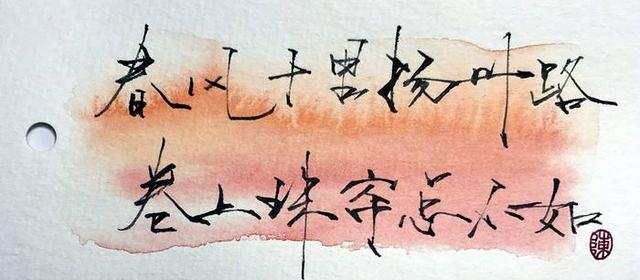 春风十里扬州路
卷上珠帘总不如
陳